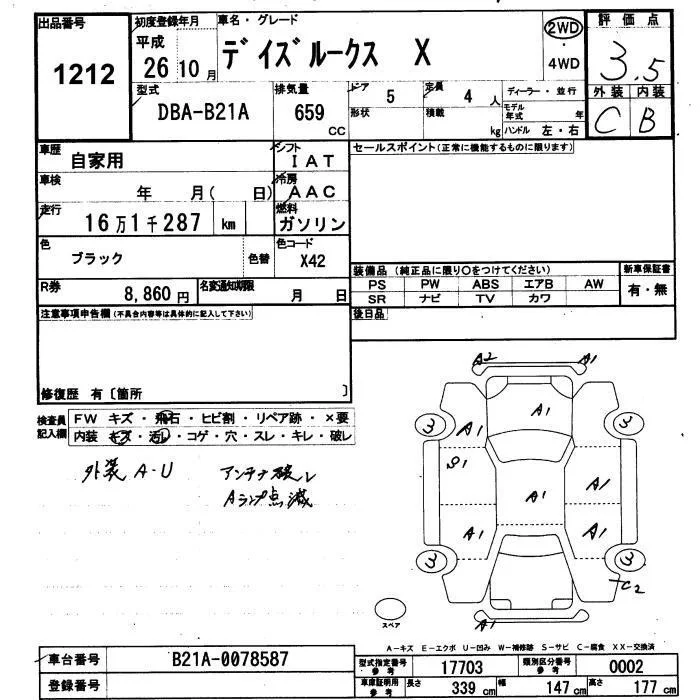 出品番号
1212
初度登録年月
平成
26年 10月
車名・グレード
デイズルークス X
2WD
・
4WD
評価点
3.5
外装 内装
C B
型式
DBA-B21A
排気量
659
CC
ドア 5
形状
定員 4 人
積載 kg
ディーラー・並行
モデル年式 年
ハンドル 左・右
車歴
自家用
シフト
IAT
セールスポイント(正常に機能するものに限ります)
車検
年 月( 日)
冷房
AAC
走行
16万1千287 km
燃料
ガソリン
色
ブラック
色替
色コード
X42
R券
8,860円
名変通知期限
月 日
装備品 (純正品に限り○をつけてください)
PS PW ABS エアB AW
SR ナビ TV カワ
新車保証書
有・無
後日品
注意事項申告欄(不具合内容等は具体的に記入して下さい)
修復歴 有〔箇所 〕
検査員
記入欄
FW キズ・飛石・ヒビ割・リペア跡・×要
内装 キズ・汚れ・コゲ・穴・スレ・キレ・破レ
外装 A-U アンテナ破レ
Aランプ点滅
A2 A1
A1
3 3
A1
S1
A1 A1
A1 A1
3 3
C2
スペア
A1
A-キズ E-エクボ U-凹み W-補修跡 S-サビ C-腐食 XX-交換済
車台番号
B21A-0078587
登録番号
型式指定番号
参考
17703
類別区分番号
参考
0002
車庫証明用
参考
長さ 339 cm 幅 147 cm 高さ 177 cm